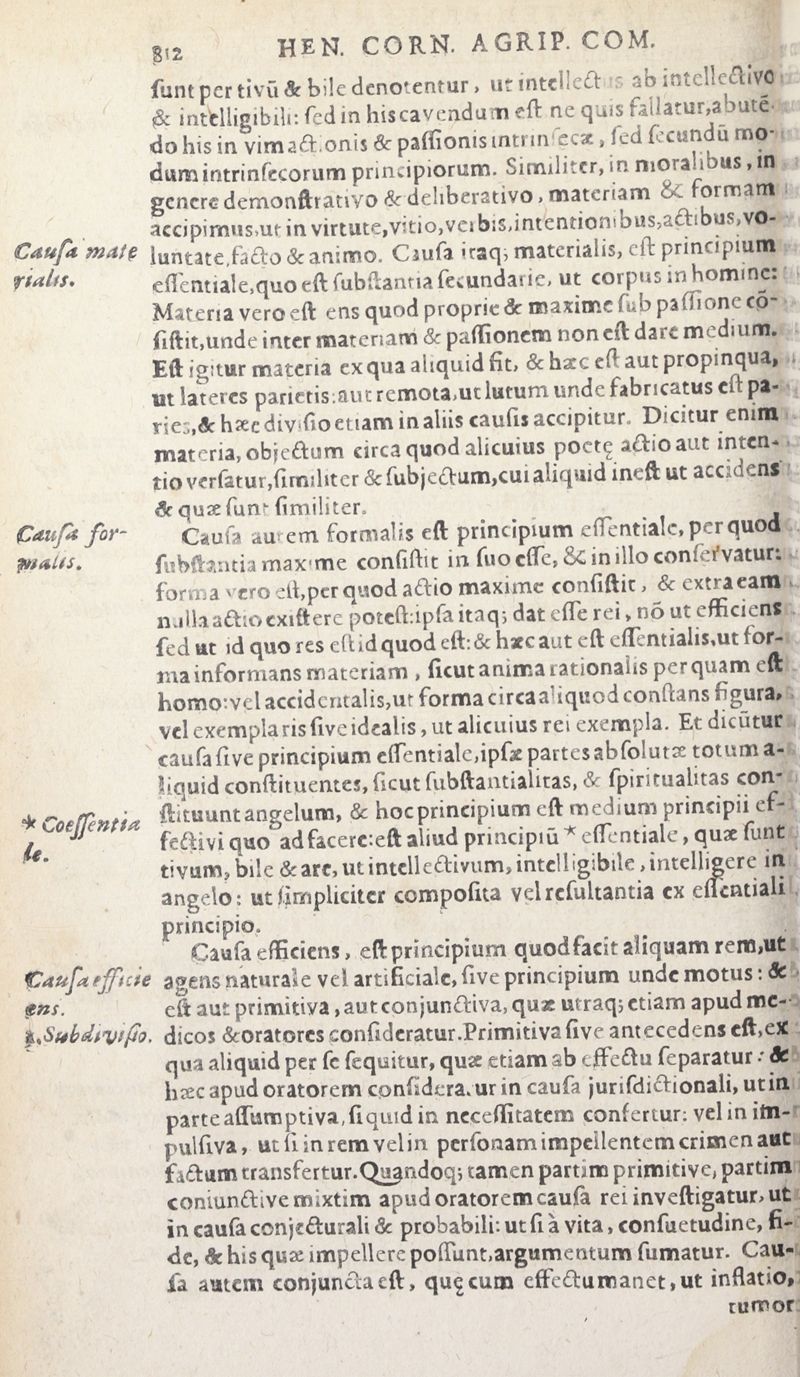 812 HEN. CORN. AGRIP. COM.
ſunt per tivū & bile denotentur, ut intellect⁹ ab intellectivo
& intelligibili: ſed in his cavendum eſt ne quis fallatur, abutē-
do his in vim actionis & paſſionis intrinſecæ, ſed ſecundū mo-
dum intrinſecorum principiorum. Similiter, in moralibus, in
genere demonſtrativo & deliberativo, materiam & formam
accipimus, ut in virtute, vitio, verbis, intentionibus, actibus, vo-
Cauſa mate
rialis.
luntate, facto & animo. Cauſa itaq; materialis, eſt principium
eſſentiale, quo eſt ſubſtantia ſecundarie, ut corpus in homine:
Materia vero eſt ens quod proprie & maxime ſub paſſione cō-
ſiſtit, unde inter materiam & paſſionem non eſt dare medium.
Eſt igitur materia ex qua aliquid fit, & hæc eſt aut propinqua,
ut lateres parietis: aut remota, ut lutum unde fabricatus eſt pa-
ries, & hæc diviſio etiam in aliis cauſis accipitur. Dicitur enim
materia, objectum circa quod alicuius poetę actio aut inten-
tio verſatur, ſimiliter & ſubjectum, cui aliquid ineſt ut accidens
& quæ ſunt ſimiliter.
Cauſa for-
malis.
Cauſa autem formalis eſt principium eſſentiale, per quod
ſubſtantia maxime conſiſtit in ſuo eſſe, & in illo conſervatur:
forma vero eſt, per quod actio maxime conſiſtit, & extra eam
nulla actio exiſtere poteſt: ipſa itaq; dat eſſe rei, nō ut efficiens
ſed ut id quo res eſt id quod eſt: & hæc aut eſt eſſentialis, ut for-
ma informans materiam, ſicut anima rationalis per quam eſt
homo: vel accidentalis, ut forma circa aliquod conſtans figura,
vel exemplaris ſive idealis, ut alicuius rei exempla. Et dicūtur
cauſa ſive principium eſſentiale, ipſæ partes abſolutæ totum a-
liquid conſtituentes, ſicut ſubſtantialitas, & ſpiritualitas con-
* Coeſſentia
le.
ſtituunt angelum, & hoc principium eſt medium principii ef-
fectivi quo ad facere: eſt aliud principiū * eſſentiale, quæ ſunt
tivum, bile & are, ut intellectivum, intelligibile, intelligere in
angelo: ut ſimpliciter compoſita vel reſultantia ex eſſentiali
principio.
Cauſa efficiens, eſt principium quod facit aliquam rem, ut
Cauſa efficie
ens.
agens naturale vel artificiale, ſive principium unde motus: &
eſt aut primitiva, aut conjunctiva, quæ utraq; etiam apud me-
1. Subdiviſio.
dicos & oratores conſideratur. Primitiva ſive antecedens eſt, ex
qua aliquid per ſe ſequitur, quæ etiam ab effectu ſeparatur: &
hæc apud oratorem conſideratur in cauſa jurisdictionali, ut in
parte aſſumptiva, ſi quid in neceſſitatem confertur: vel in im-
pulſiva, ut ſi in rem vel in perſonam impellentem crimen aut
factum transfertur. Quandoq; tamen partim primitive, partim
coniunctive mixtim apud oratorem cauſa rei inveſtigatur, ut
in cauſa conjecturali & probabili: ut ſi à vita, conſuetudine, fi-
de, & his quæ impellere poſſunt, argumentum ſumatur. Cau-
ſa autem conjuncta eſt, quę cum effectu manet, ut inflatio,
tumor